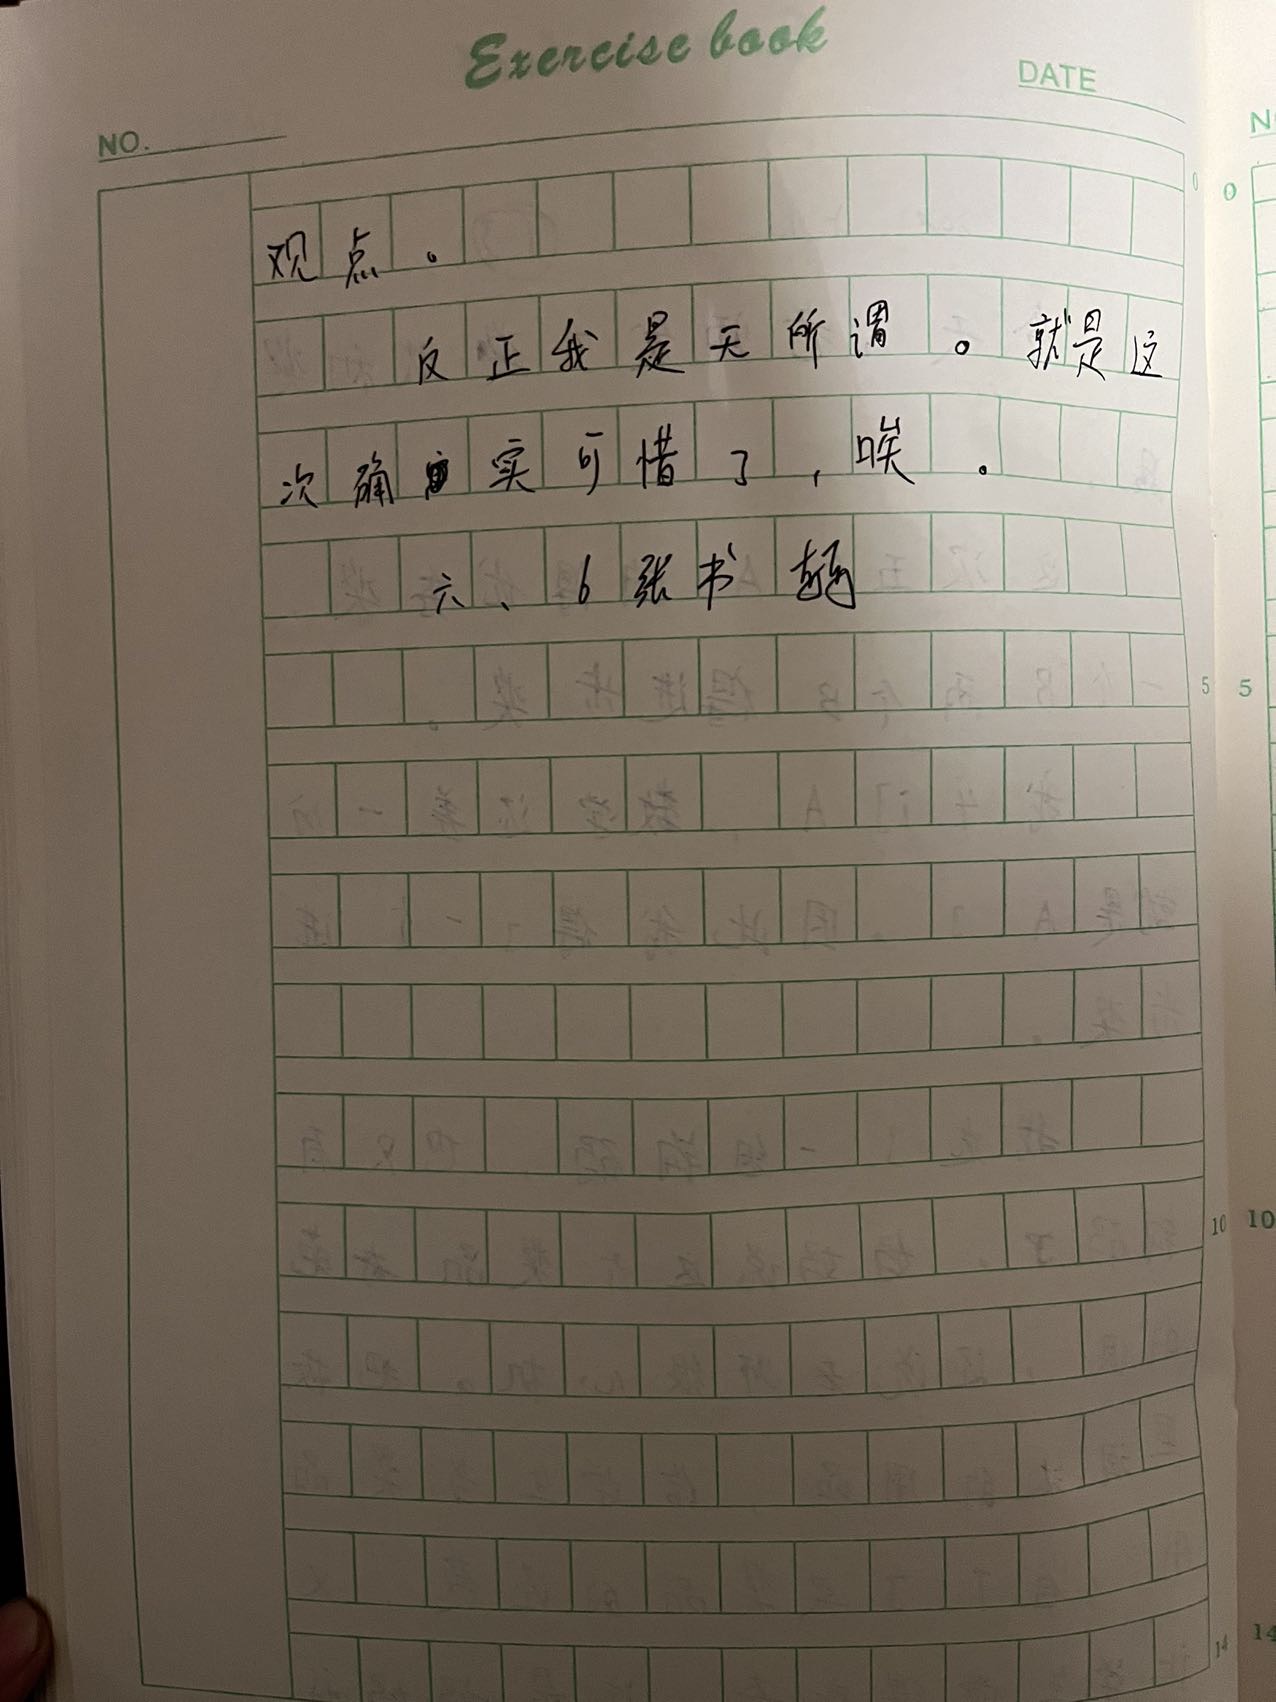 Exercise book
DATE
NO.
观点。
反正我是无所谓。就是这
次确实可惜了，唉。
六、6张书
0
5
10
14
0
5
10
14